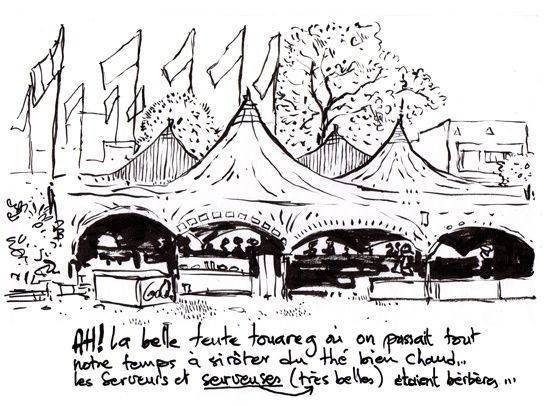 AH! la belle tente touareg où on passait tout
notre temps à siroter du thé bien chaud...
les serveurs et serveuses (très belles) étaient berbères...